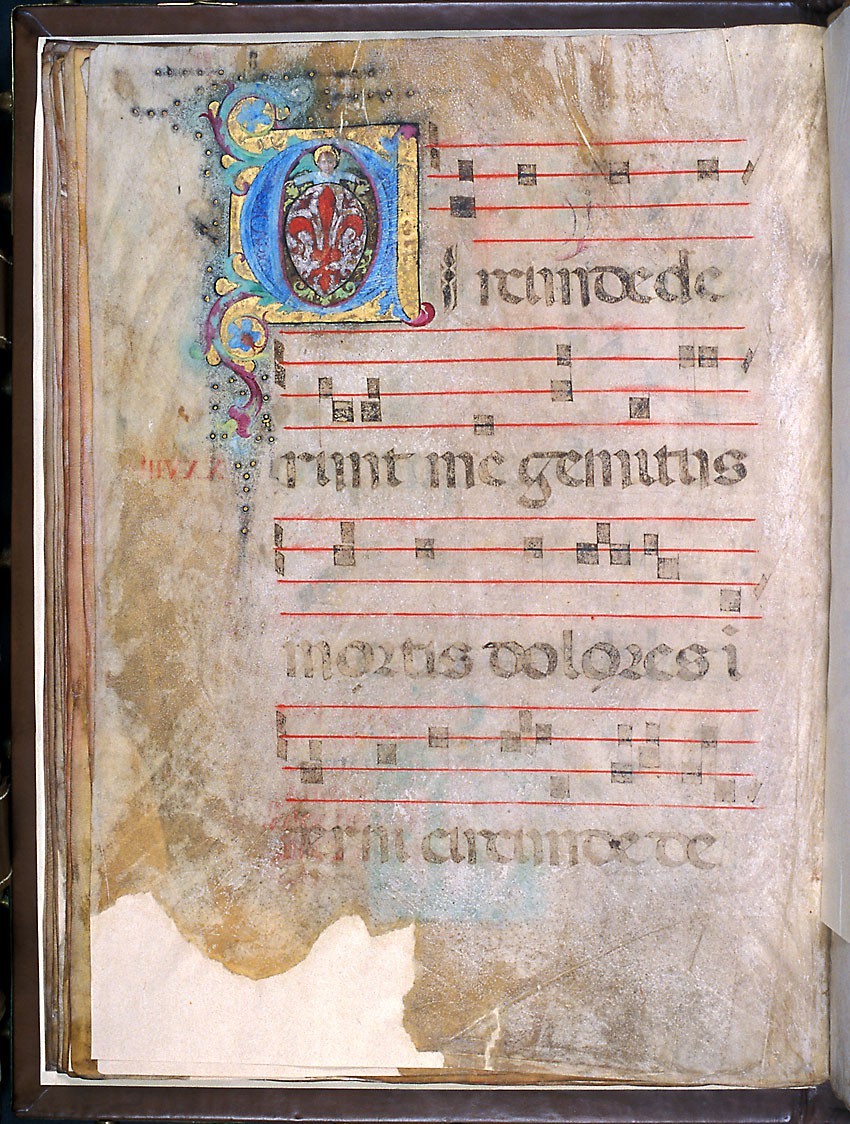 CIrcundede
runt me gemitus
mortis dolores i
ferni circundede